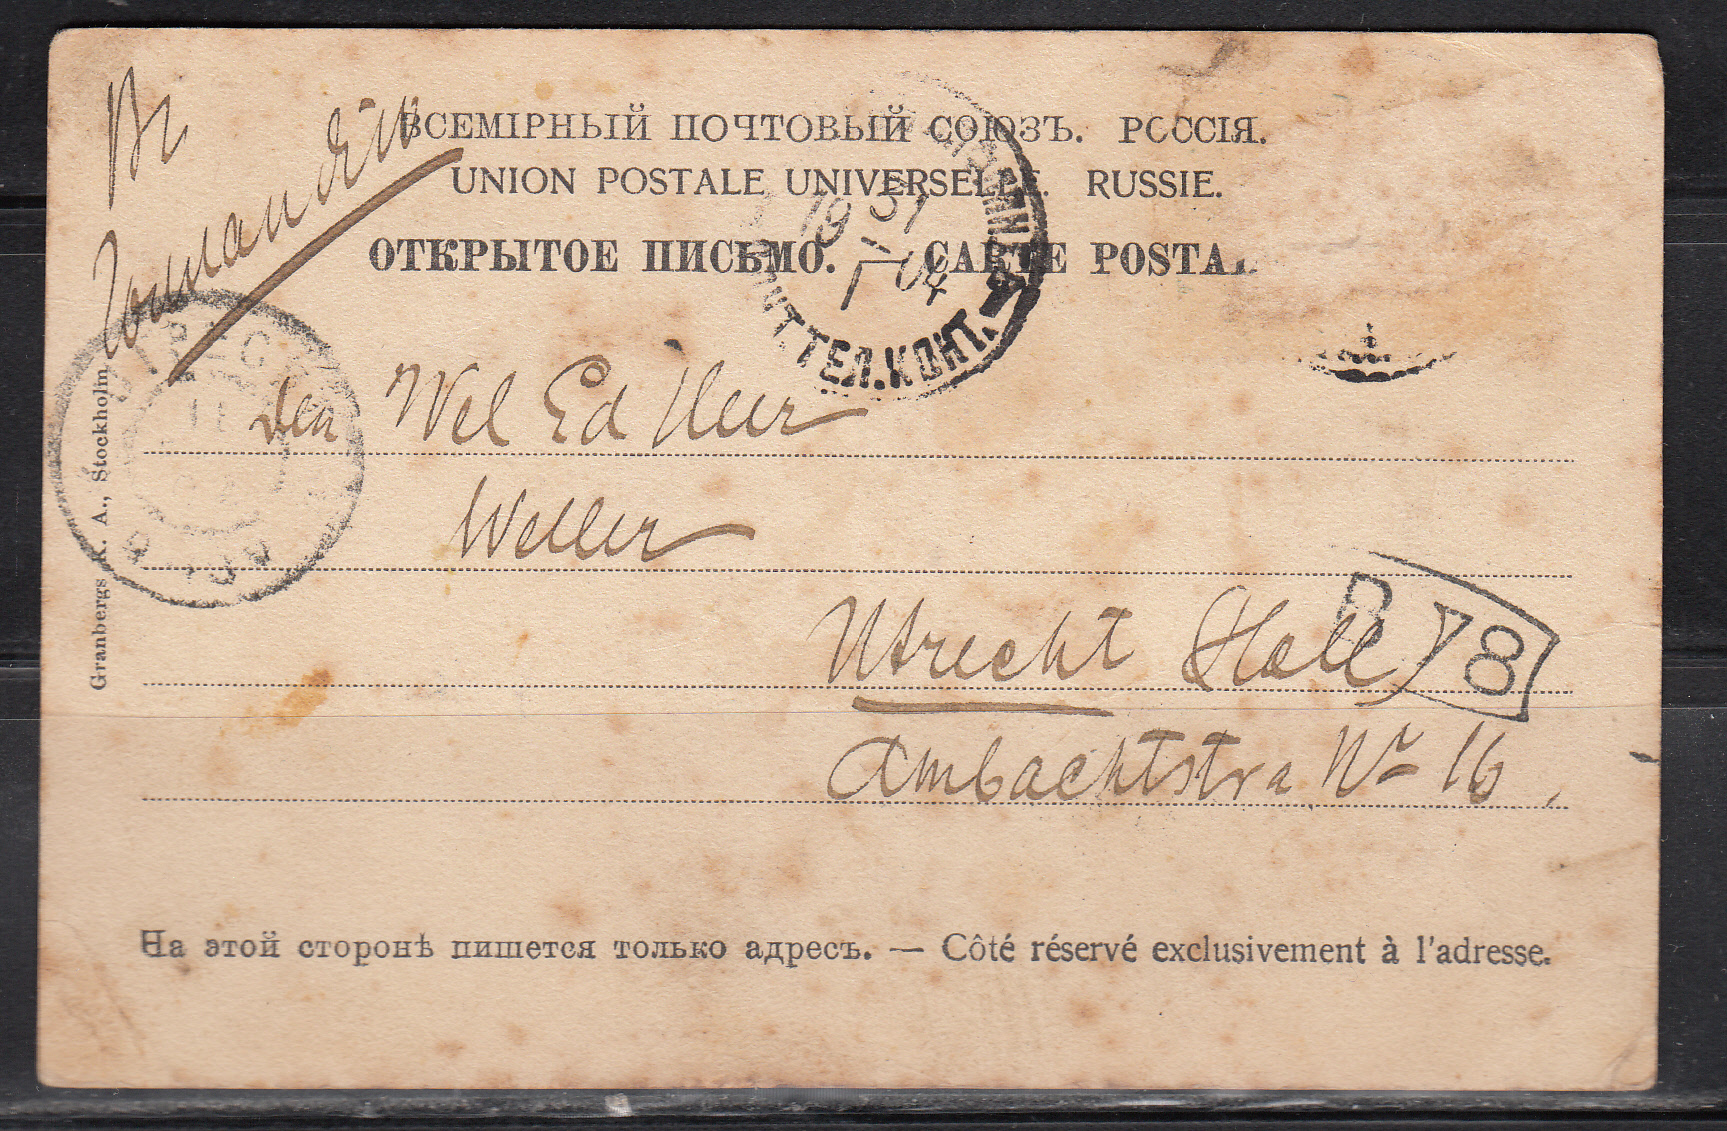 ВСЕМІРНЫЙ ПОЧТОВЫЙ СОЮЗЪ. РОССІЯ.
UNION POSTALE UNIVERSELLE. RUSSIE.
ОТКРЫТОЕ ПИСЬМО. — CARTE POSTA
31
1 04
ТЕЛ. КОНТ.
den Wel Ed Heer
Weller
Utrecht Holl
Ambachtstra No 16
78
Granbergs K. A., Stockholm
На этой сторонѣ пишется только адресъ. — Côté réservé exclusivement à l'adresse.